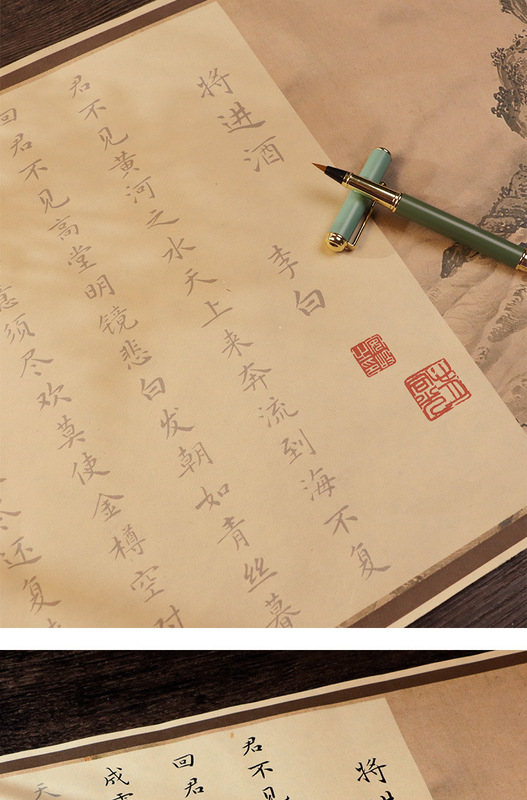 将进酒 李白
君不见黄河之水天上来奔流到海不复
回君不见高堂明镜悲白发朝如青丝暮
意须尽欢莫使金樽空对
还复
将
君不见
回君
成
天